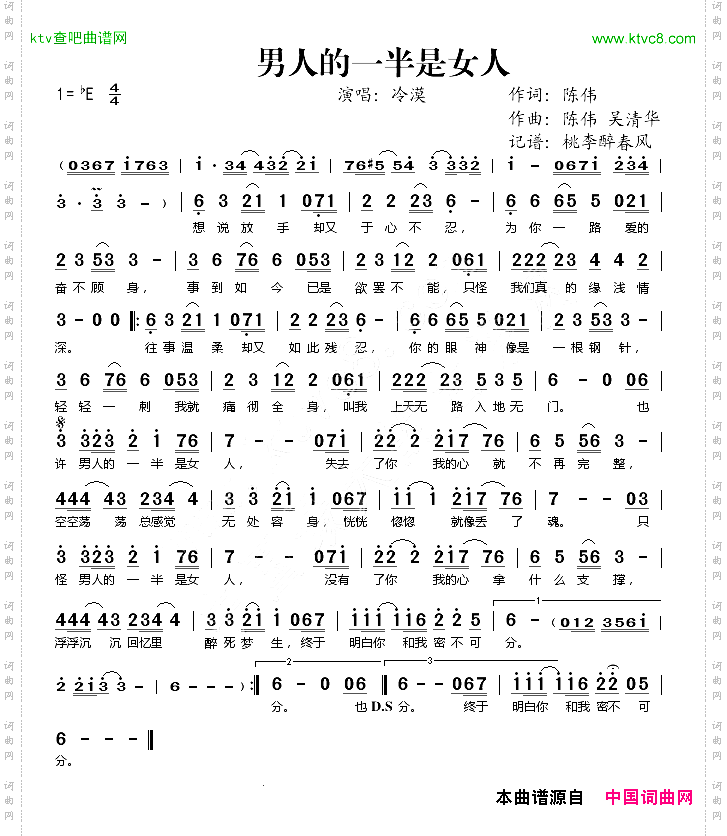 ktv查吧曲谱网
www.ktvc8.com
男人的一半是女人
1=♭E 4/4
演唱：冷漠
作词：陈伟
作曲：陈伟 吴清华
记谱：桃李醉春风
(0367 1763 | 1·34 432 21 | 76#5 54 3 332 | 1 - 0671 234 |
3·3 3 - ) | 6 3 21 1 071 | 2 2 23 6 - | 6 6 65 5 021 |
想说放手却又于心不忍，为你一路爱的
2 3 53 3 - | 3 6 76 6 053 | 2 3 12 2 061 | 222 23 4 4 2 |
奋不顾身，事到如今已是欲罢不能，只怪我们真的缘浅情
3 - 0 0 ‖: 6 3 21 1 071 | 2 2 23 6 - | 6 6 65 5 021 | 2 3 53 3 - |
深。往事温柔却又如此残忍，你的眼神像是一根钢针，
3 6 76 6 053 | 2 3 12 2 061 | 222 23 53 5 5 | 6 - 0 06 |
轻轻一刺我就痛彻全身，叫我上天无路入地无门。也
3 323 2 1 76 | 7 - - 071 | 22 2 217 76 | 6 5 56 3 - |
许男人的一半是女人，失去了你我的心就不再完整，
444 43 234 4 | 3 3 21 1 067 | 11 1 217 76 | 6 - - 06 |
空空荡荡总感觉无处容身，恍恍惚惚就像丢了魂。只
3 323 2 1 76 | 7 - - 071 | 22 2 217 76 | 6 5 56 3 - |
怪男人的一半是女人，没有了你我的心拿什么支撑，
444 43 234 4 | 3 3 21 1 067 | 111 116 2 2 5 | 1 6 - (012 3561 |
浮浮沉沉回忆里醉死梦生，终于明白你和我密不可分。
2 213 3 - | 6 - - - ) :‖ 2 6 - 0 06 ‖ 3 6 - - 067 | 111 116 22 05 |
分。也 D.S 分。终于明白你和我密不可
6 - - - ‖
分。
本曲谱源自 中国词曲网
词曲网